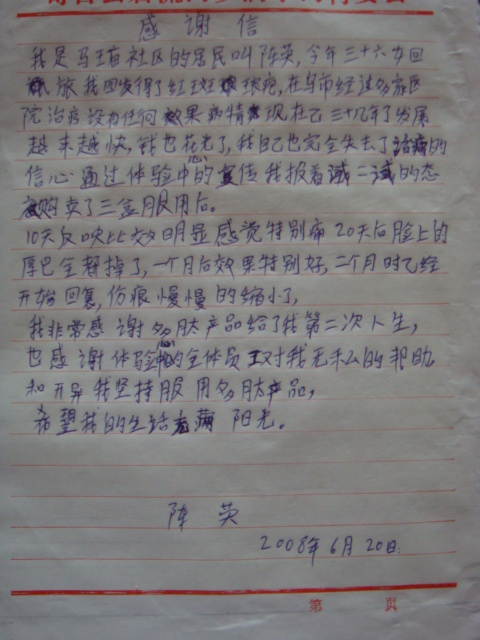 感谢信
我是马王苗社区的居民叫陈英,今年三十六岁回
族我回发得了红斑狼疮,在乌市经过多家医
院治疗没有任何效果病情现在已三十几年了发展
越来越快,钱也花光了,我自己也完全失去了治病的
信心通过体验中心的宣传我报着试一试的态
度购买了三盒月服用后。
10天反映比效明显感觉特别痛20天后脸上的
厚巴全群掉了,一个月后效果特别好,二个月时已经
开始回复,伤痕慢慢的缩小了,
我非常感谢多肽产品给了我第二次人生,
也感谢体验中心的全体员工对我无私的帮助
和开异我坚持服用多肽产品,
希望我的生活充满阳光。
陈英
2008年6月20日
第 页